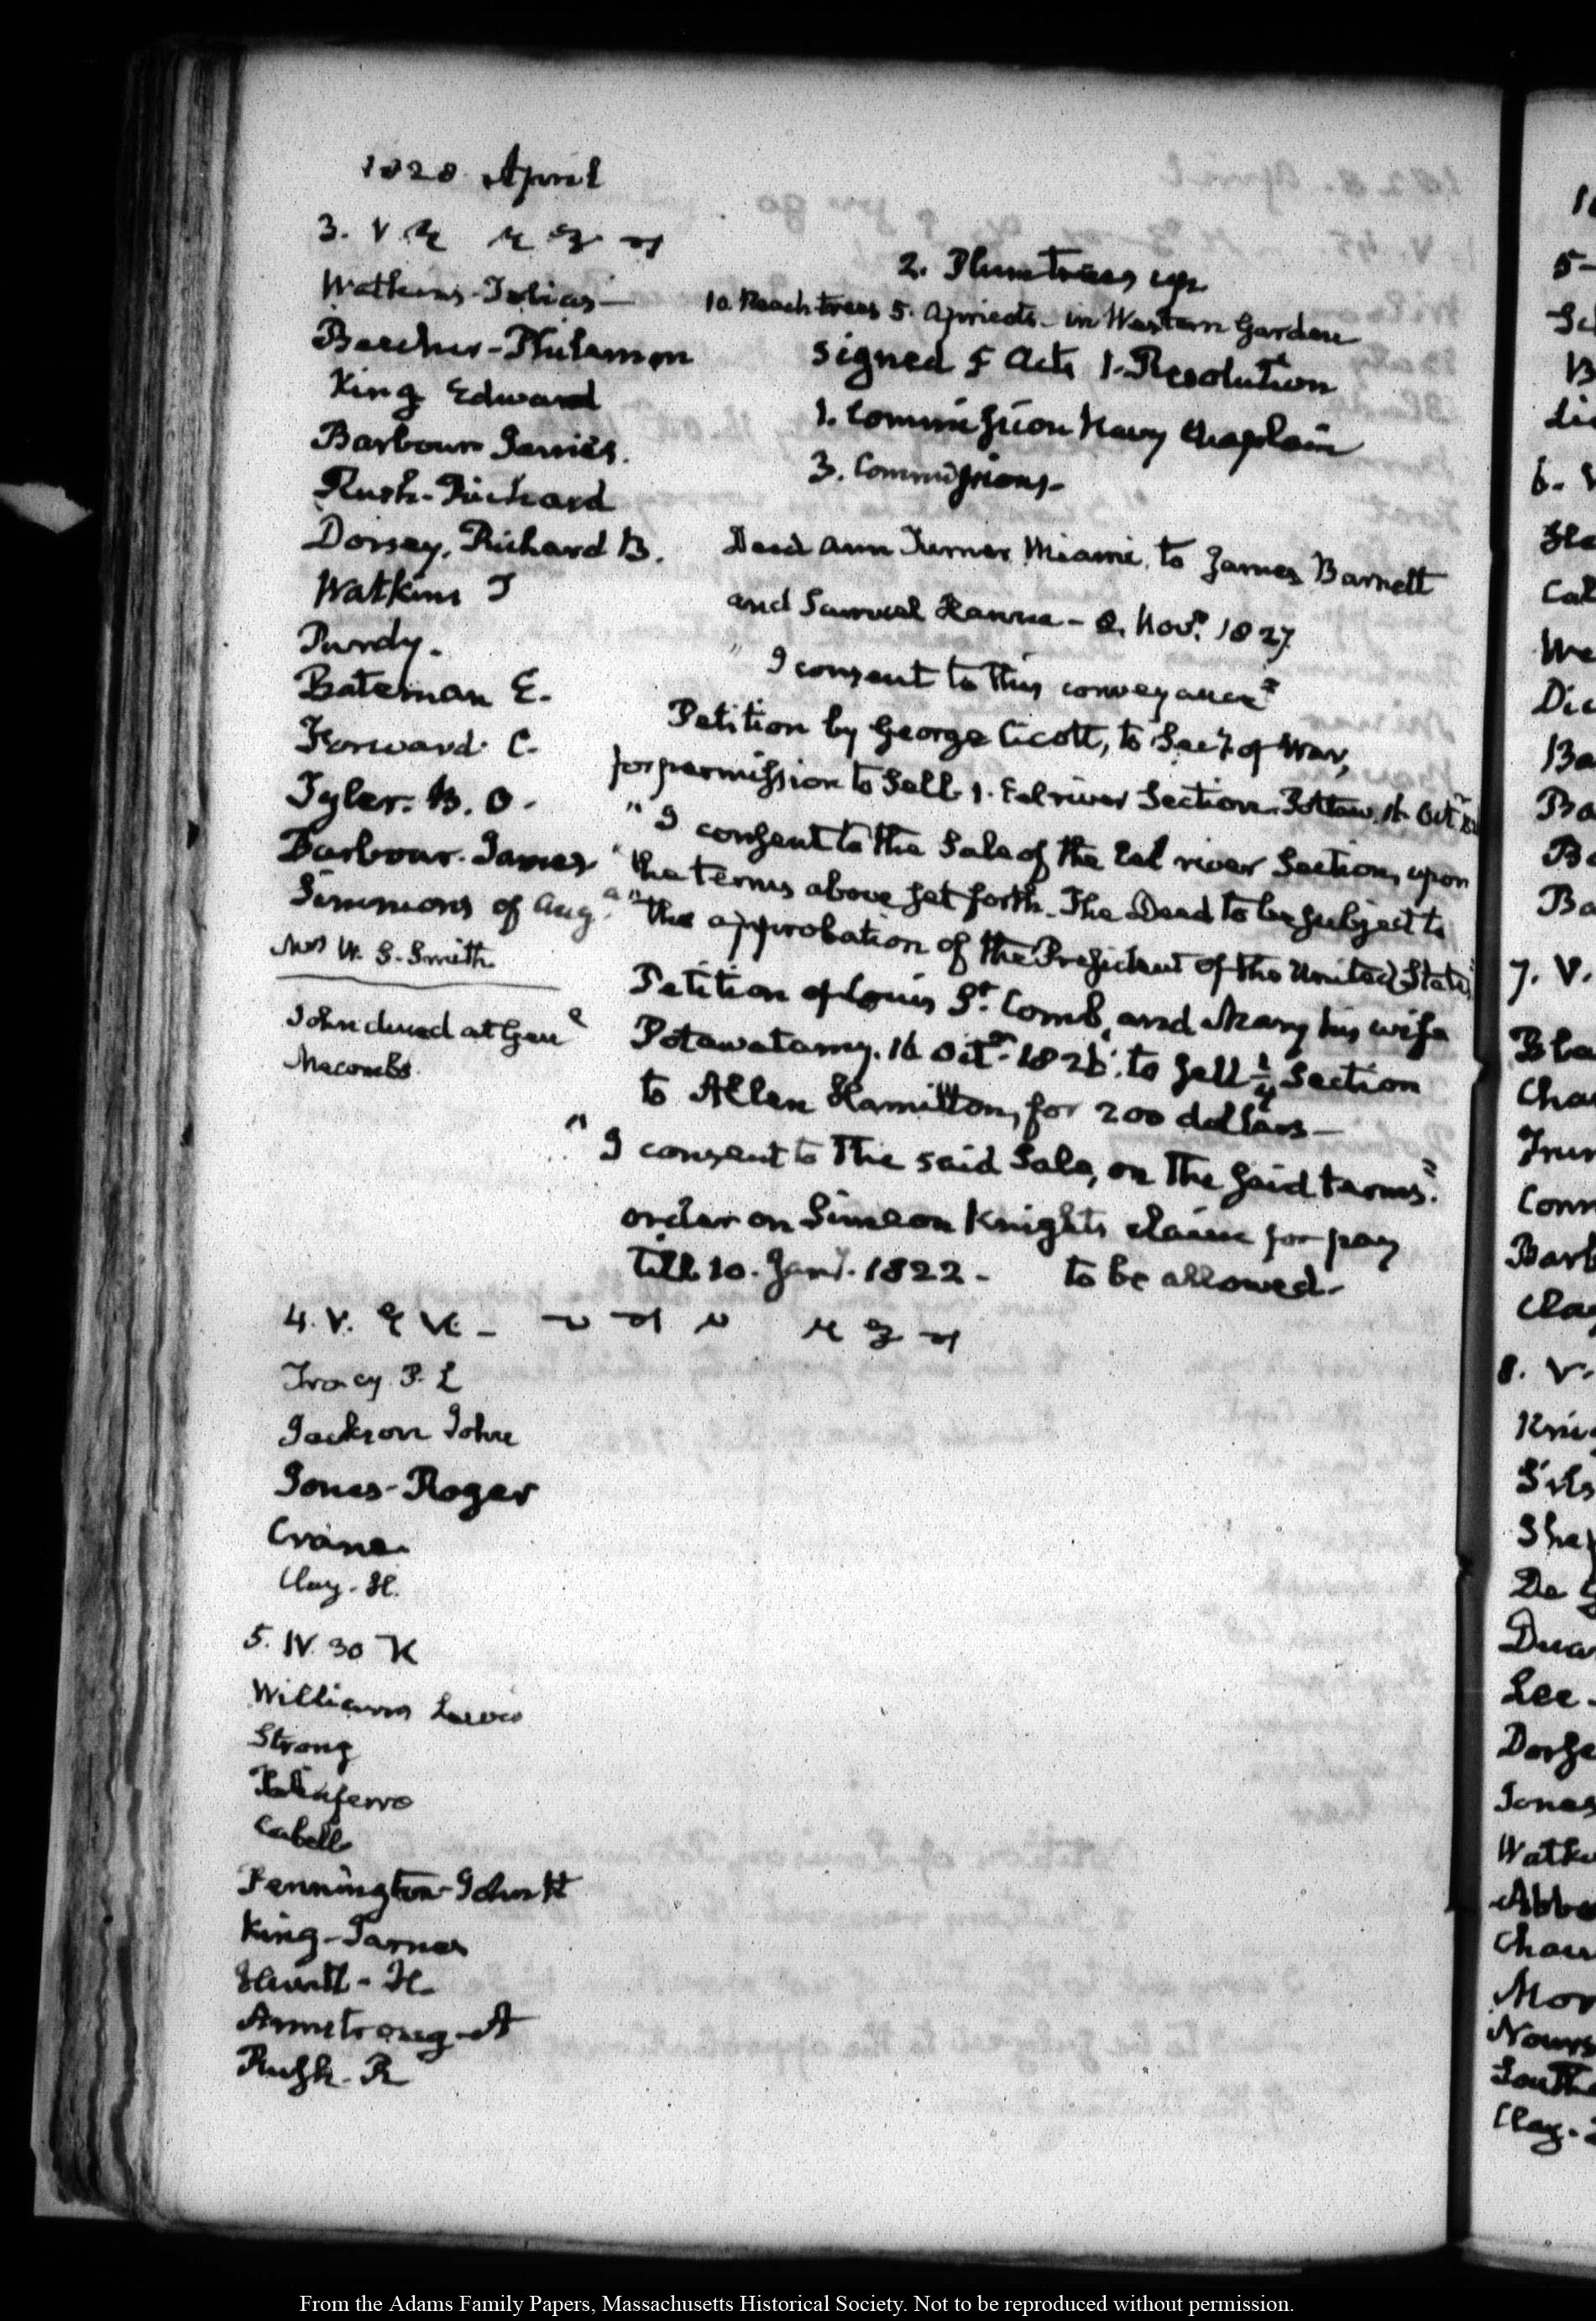 1828 April
3. V.
Watkins-Tobias-
Beecher-Philemon
King Edward
Barbour James.
Rush-Richard
Dorsey, Richard B.
Watkins T
Purdy.
Bateman E.
Forward C.
Tyler. B. O.
Barbour. James
Simmons of Aug.a
Mrs W. S. Smith
John dined at Genl
Macombs.
2. Plumtrees up
10. Peach trees 5. Apricots- in Western Garden
Signed 5 Acts 1. Resolution
1. Commission Navy Chaplain
3. Commissions-
Deed Ann Turner, Miami, to James Barnett
and Samuel Hanna- 2. Novr. 1827
"I consent to this conveyance"
Petition by George Cicott, to Secy. of War,
for permission to sell 1. Eel river Section. Pottaw. 16. Octr
"I consent to the Sale of the Eel river Section, upon
"the terms above set forth- The Deed to be subject to
"the approbation of the President of the United States
Petition of Louis St. Comb, and Mary his wife
Potawatamy. 16 Octr. 1826. to sell ¼ Section
to Allen Hamilton, for 200 dollars-
"I consent to the said Sale, on the said terms."
order on Simeon Knights claim for pay
till 10. Jany. 1822- to be allowed-
4. V.
Tracy P. L
Jackson John
Jones-Roger
Crane
Clay-H.
5. IV. 30
Williams Lewis
Strong
Taliaferro
Cabell
Pennington-John H
King-James
Hewitt-H.
Armstrong-A
Rush-R
1
5-
Se
B
di
6. V
Ste
Cal
We
Di
Ba
Ba
Be
Ba
7. V.
Bla
Cha
Trum
Conn
Barb
Clay
8. V.
Kni
Sils
She
De
Dua
Lee-
Dorse
Jones
Watk
Abbo
Chau
Mor
Nours
South
Clay-
From the Adams Family Papers, Massachusetts Historical Society. Not to be reproduced without permission.